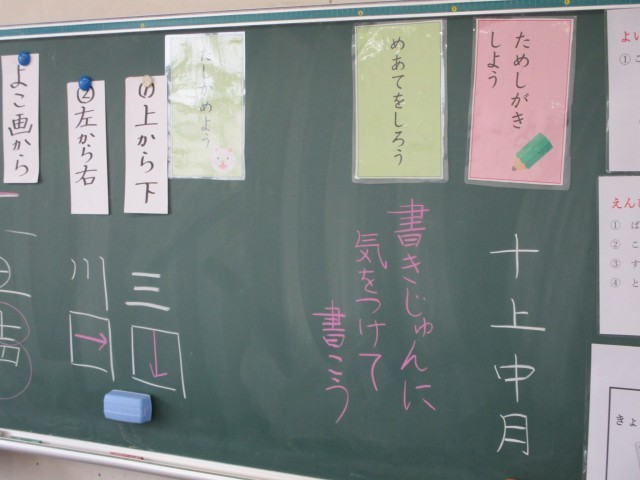 ためしがき
しよう
十上中月
めあてをしろう
書きじゅんに
気をつけて
書こう
たしかめよう
(1)上から下
三
②左から右
川
よこ画から
一
よい
①
えん
①
②
③
④
きょ